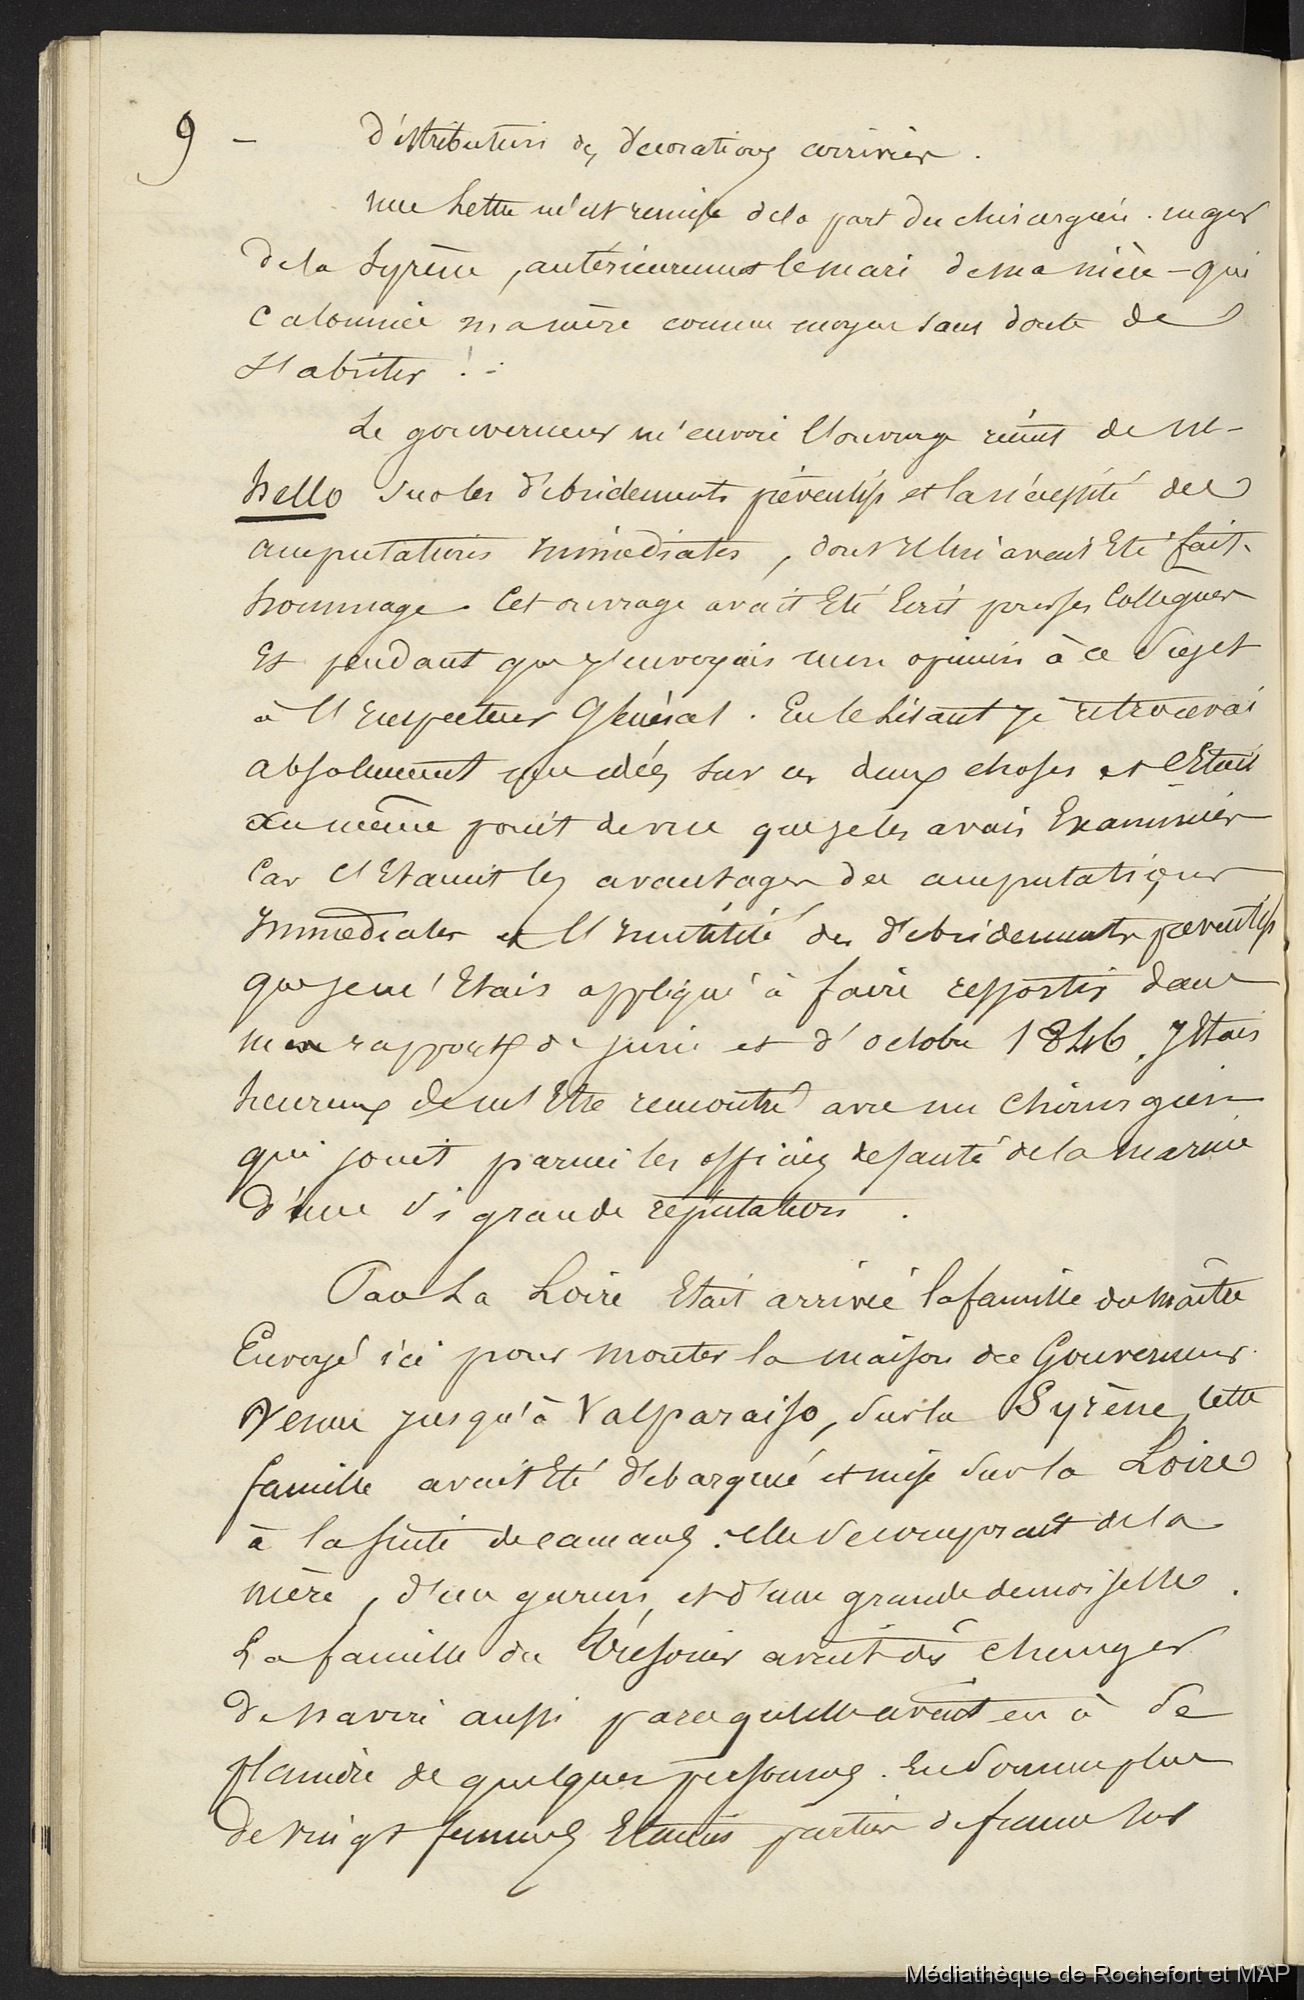 9 — distribution des décorations arrivées.
une lettre m'est remise de la part du chirurgien-major
de la Syrène, antérieurement le mari de ma nièce – qui
calomnie ma mère comme moyen sans doute de
s'abriter !
Le gouverneur m'envoie l'ouvrage récent de M.
hello sur les débridements préventifs et la nécessité des
amputations immédiates, dont il lui avait été fait
hommage. Cet ouvrage avait été écrit pour ses collègues
et pendant que j'envoyais mon opinion à ce sujet
à l'Inspecteur Général. En le lisant je retrouvai
absolument mes idées sur ces deux choses et c'était
au même point de vue que je les avais examinées
car c'étaient les avantages des amputations
immédiates et l'inutilité des débridements préventifs
que je m'étais appliqué à faire ressortir dans
mon rapport de juin et d'octobre 1846. J'étais
heureux de m'être rencontré avec un chirurgien
qui jouit parmi les officiers de santé de la marine
d'une si grande réputation.
Par La Loire était arrivée la famille du maître
Envoyé ici pour monter la maison du Gouverneur.
Venue jusqu'à Valparaiso, sur la Syrène, cette
famille avait été débarquée et mise sur la Loire
à la suite de cancans. elle se composait de la
mère, d'un garçon, et d'une grande demoiselle.
La famille du trésorier avait dû changer
de navire aussi parcequ'elle avait eu à se
plaindre de quelques personnes. En somme plus
de vingt femmes étaient parties de france sur
Médiathèque de Rochefort et MAP